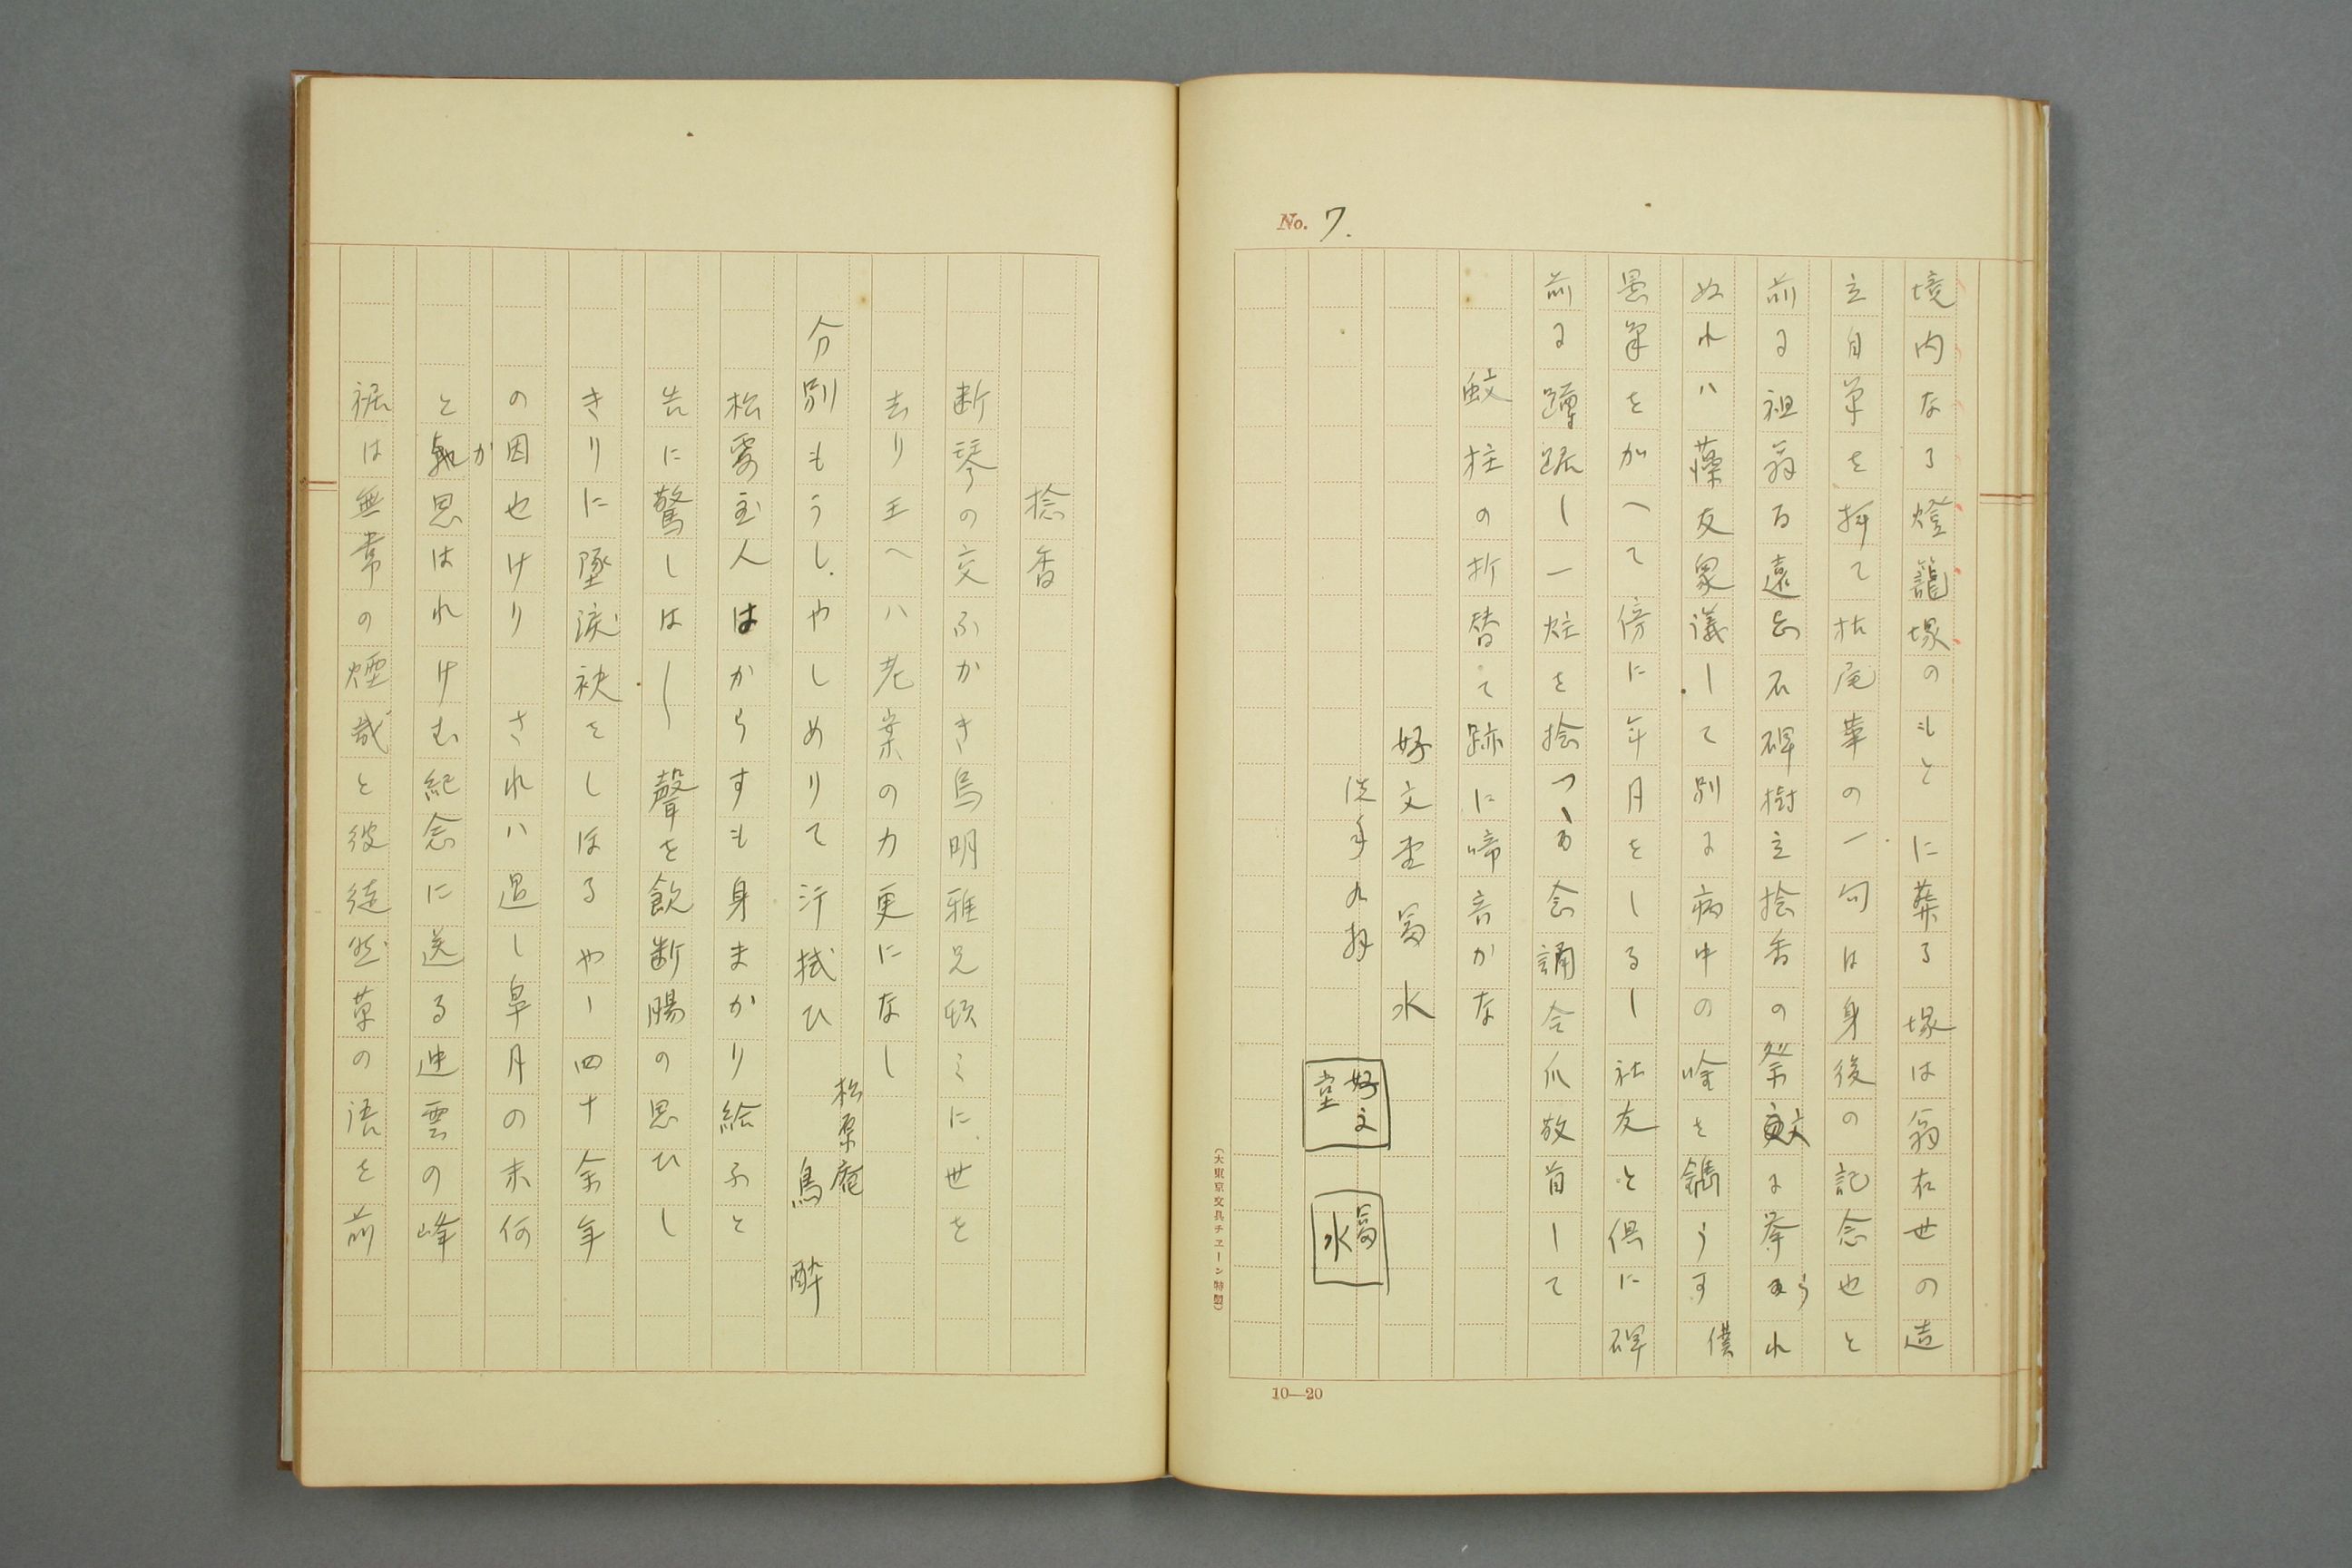 No. 7.
境内なる燈籠塚のもとに葬る塚は翁在世の造
立自筆を拝て枯尾華の一句は身後の記念也と
前に祖翁百遠忌石碑樹立捻香の祭文に挙られ
ぬれハ藻友衆議して別に病中の吟を鐫らす僕
愚筆をかへて傍に年月をしるし社友と倶に碑
前に蹲踞し一炷を捻つゝ念誦合爪敬首して
蚊柱の折替て跡に啼音かな
好文堂富水
洗手九拜
好文堂
富水
(大東京文具チエーン特製)
10—20
捻香
断琴の交ふかき烏明雅兄頃ミに世を
去り玉へハ老案の力更になし
分別もうし.やしめりて汗拭ひ
松原庵
鳥酔
松露主人はからすも身まかり給ふと
告に驚しはし〳〵聲を飲断腸の思ひし
きりに墜涙袂をしほるやー四十余年
の因也けり　されハ過し皐月の末何
とか思はれけむ紀念に送る迚雲の峰
裾は無常の煙哉と彼徒然草の語を前